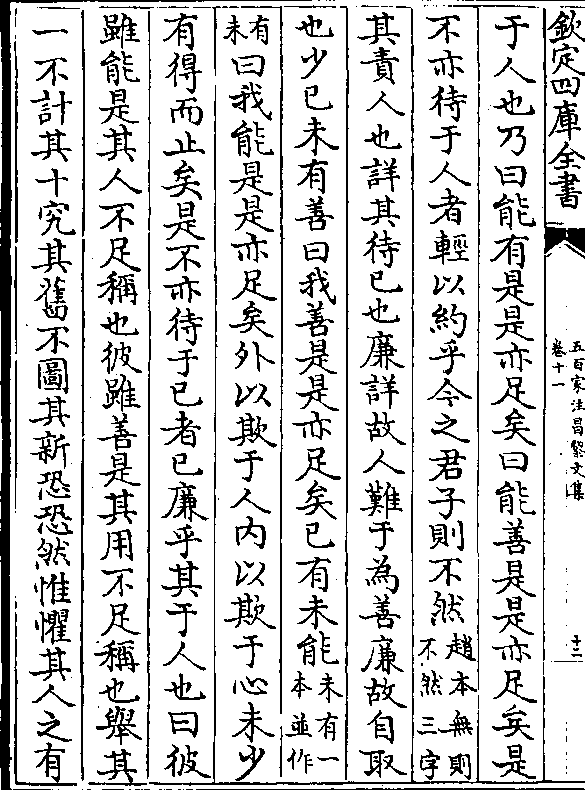 欽定四庫全書
五百家注昌黎文集
卷十一
十二
于人也乃曰能有是是亦足矣曰能善是是亦足矣是
不亦待于人者輕以約乎今之君子則不然趙本無則不然三字
其責人也詳其待已也廉詳故人難于為善廉故自取
也少已未有善曰我善是是亦足矣已有未能未有一本並作
未有曰我能是是亦足矣外以欺于人内以欺于心未少
有得而止矣是不亦待于已者已廉乎其于人也曰彼
雖能是其人不足稱也彼雖善是其用不足稱也舉其
一不計其十究其舊不圖其新恐恐然惟懼其人之有